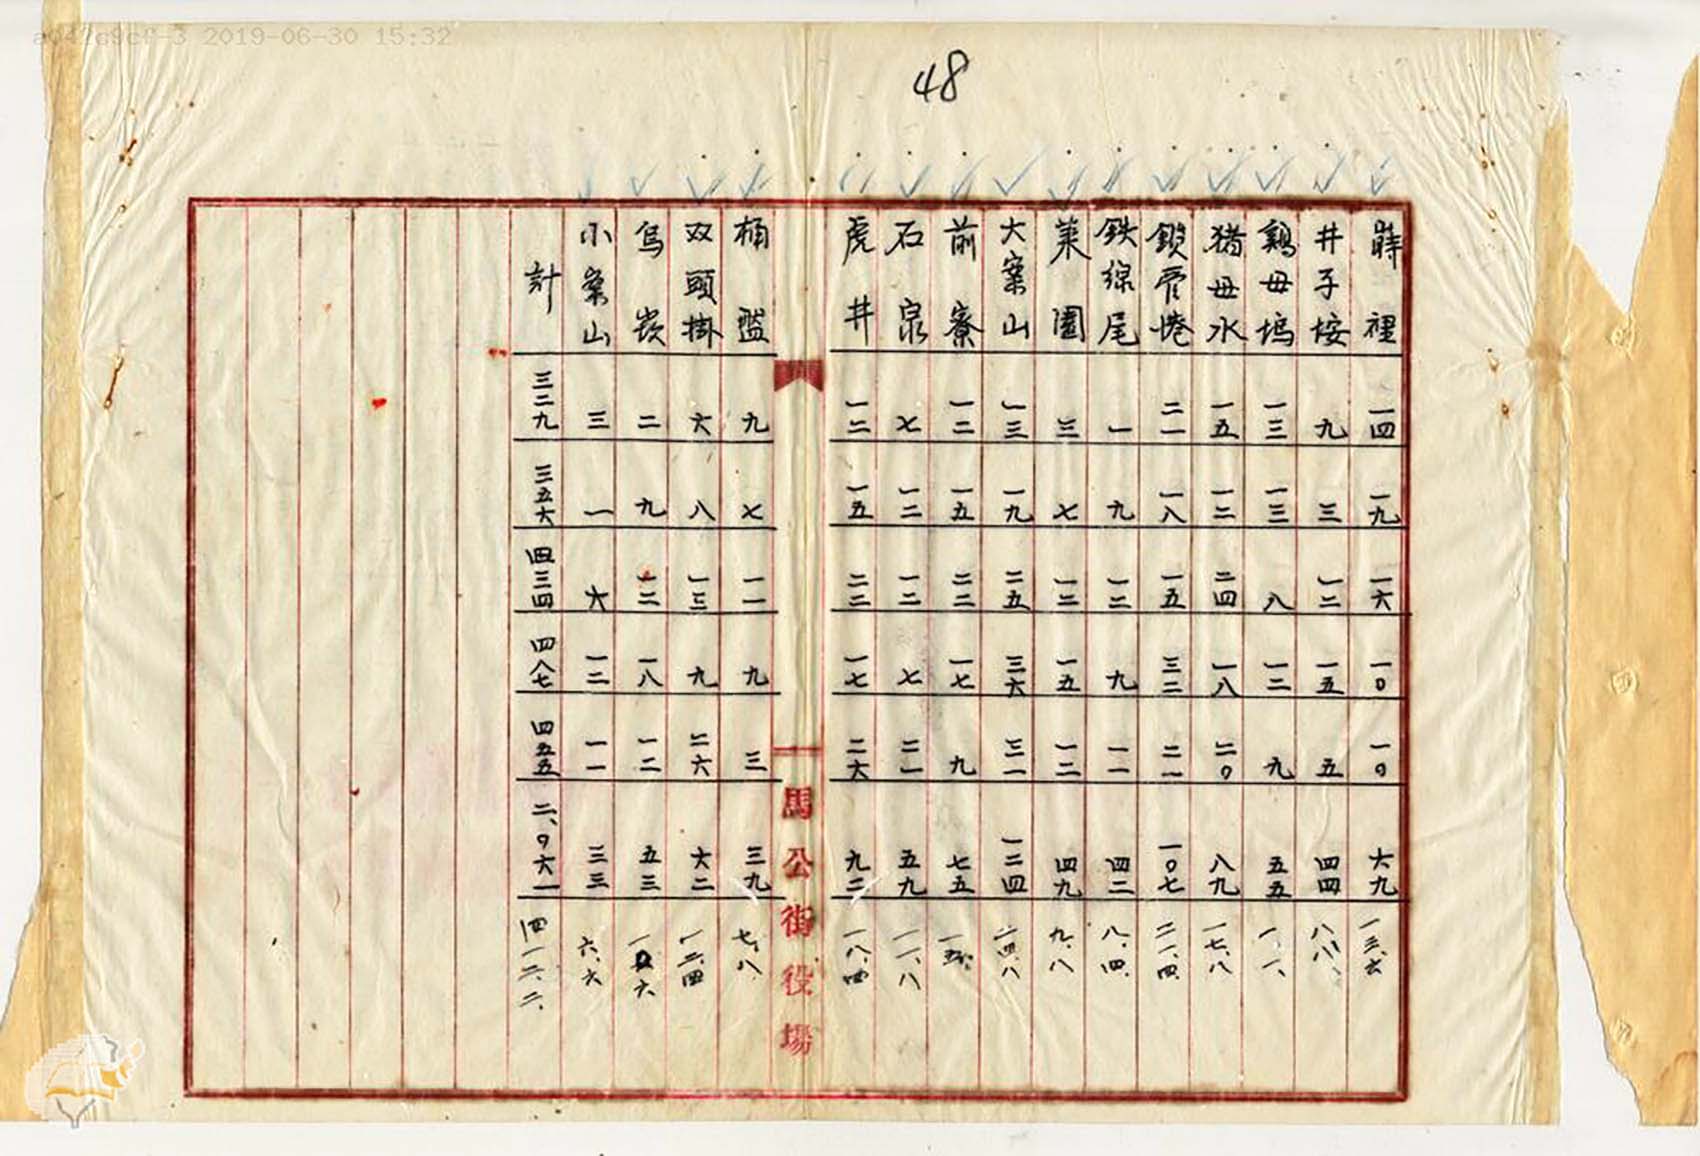 a042c9cf-3 2019-06-30 15:32
48
蒔裡 一四 一九 一六 一〇 一〇 六九 一三.六
井子垵 九 三 一二 一五 五 四四 八.八
鷄母塢 一三 一三 八 一二 九 五五 一一.
猪母水 一五 一二 二四 一八 二〇 八九 一七.八
鎖管港 二一 一八 一五 三二 二一 一〇七 二一.四
鉄線尾 一 九 一二 九 一一 四二 八.四
菜園 三 七 一二 一五 一二 四九 九.八
大案山 一三 一九 二五 三六 三一 一二四 二四.八
前寮 一二 一五 二二 一七 九 七五 一五.
石泉 七 一二 一二 七 二一 五九 一一.八
虎井 一二 一五 二二 一七 二六 九二 一八.四
馬公街役場
桶盤 九 七 一一 九 三 三九 七.八
双頭掛 六 八 一三 九 二六 六二 一二.四
烏崁 二 九 一二 一八 一二 五三 一〇.六
小案山 三 一 六 一二 一一 三三 六.六
計 三二九 三五六 四三四 四八七 四五五 二、〇六一 四一二.二